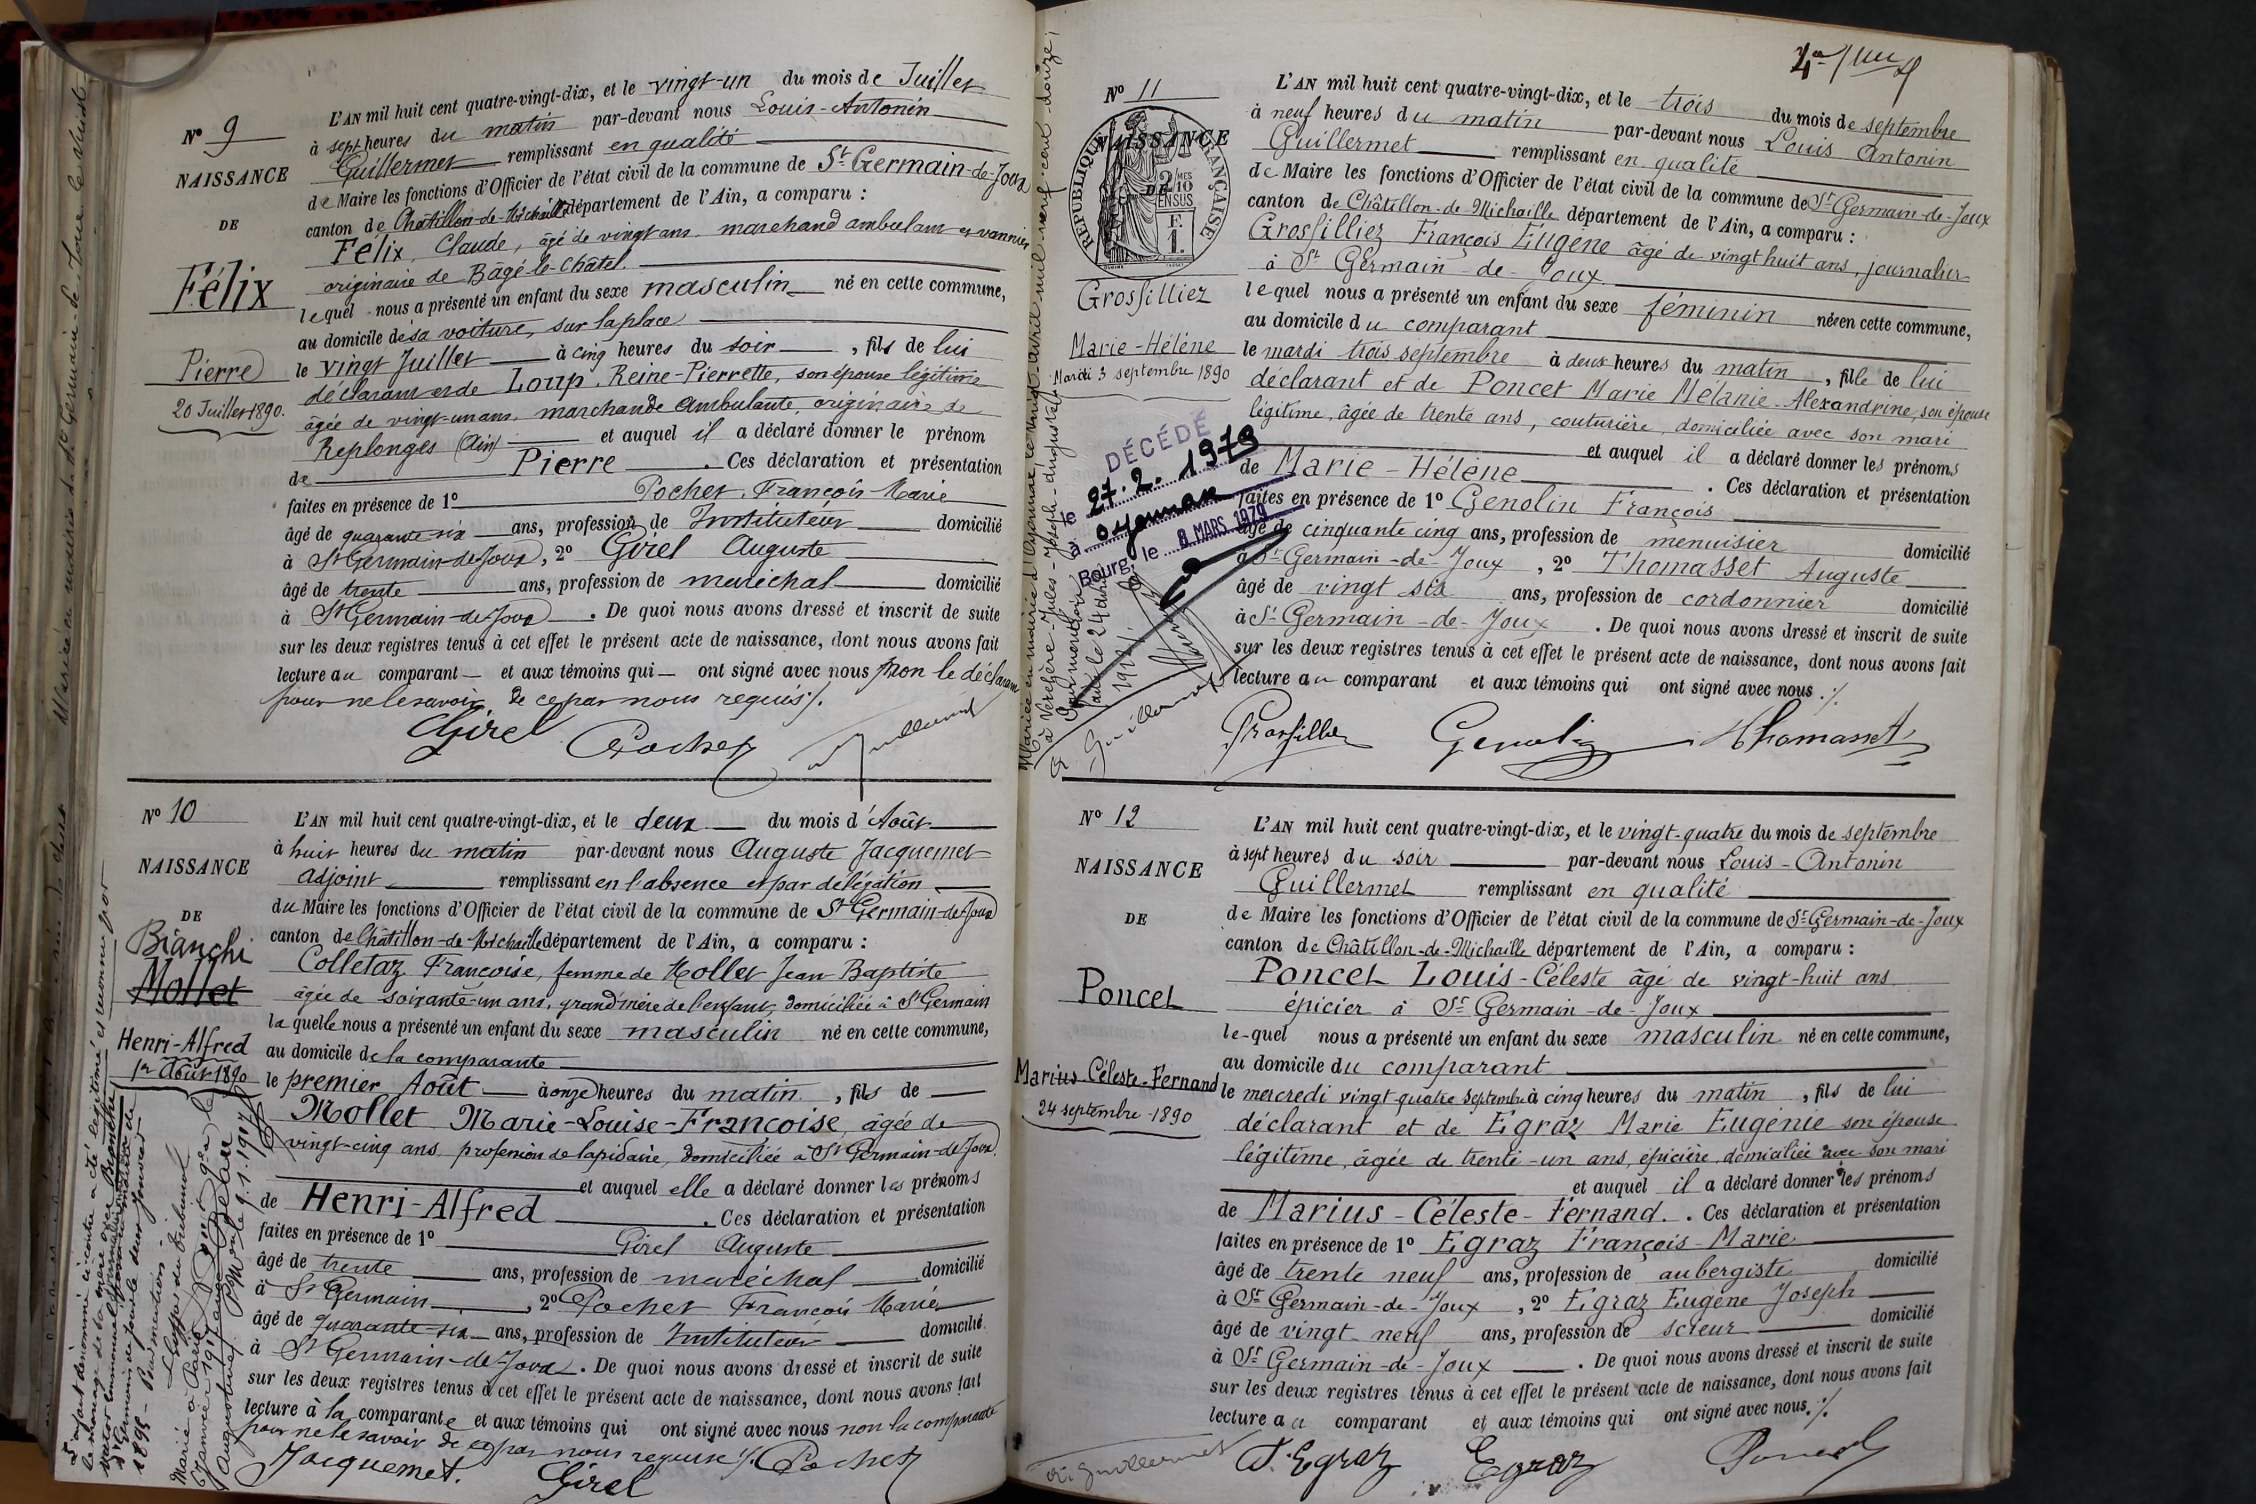 Nº 9
NAISSANCE
DE
Félix
Pierre
20 Juillet 1890.
L'AN mil huit cent quatre-vingt-dix, et le vingt-un du mois de Juillet
à sept heures du matin par-devant nous Louis-Antonin
Guillermet remplissant en qualité
de Maire les fonctions d'Officier de l'état civil de la commune de St Germain-de-Joux
canton de Châtillon-de-Michaille département de l'Ain, a comparu :
Félix, Claude, âgé de vingt ans, marchand ambulant et vannier
originaire de Bâgé-le-Châtel.
lequel nous a présenté un enfant du sexe masculin né en cette commune,
au domicile de sa voiture, sur la place
le vingt Juillet à cinq heures du soir, fils de lui
déclarant et de Loup, Reine-Pierrette, son épouse légitime
âgée de vingt-un ans, marchande ambulante, originaire de
Replonges (Ain) et auquel il a déclaré donner le prénom
de Pierre. Ces déclaration et présentation
faites en présence de 1º Pochet, François-Marie
âgé de quarante-six ans, profession de Instituteur domicilié
à St Germain-de-Joux, 2º Girel Auguste
âgé de trente ans, profession de maréchal domicilié
à St Germain-de-Joux. De quoi nous avons dressé et inscrit de suite
sur les deux registres tenus à cet effet le présent acte de naissance, dont nous avons fait
lecture au comparant et aux témoins qui ont signé avec nous non le déclarant
pour ne le savoir, de ce par nous requis ./.
Girel Pochet Guillermet
Nº 10
NAISSANCE
DE
Bianchi
Mollet
Henri-Alfred
1er Août 1890
L'AN mil huit cent quatre-vingt-dix, et le deux du mois d'Août
à huit heures du matin par-devant nous Auguste Jacquemet
adjoint remplissant en l'absence et par délégation
du Maire les fonctions d'Officier de l'état civil de la commune de St Germain-de-Joux
canton de Châtillon-de-Michaille département de l'Ain, a comparu :
Colletaz Françoise, femme de Mollet Jean-Baptiste
âgée de soixante-un ans, grand'mère de l'enfant, domiciliée à St Germain
laquelle nous a présenté un enfant du sexe masculin né en cette commune,
au domicile de la comparante
le premier Août à onze heures du matin, fils de
Mollet Marie-Louise-Françoise, âgée de
vingt-cinq ans, profession de lapidaire, domiciliée à St Germain-de-Joux.
et auquel elle a déclaré donner les prénoms
de Henri-Alfred. Ces déclaration et présentation
faites en présence de 1º Girel Auguste
âgé de trente ans, profession de maréchal domicilié
à St Germain, 2º Pochet François Marie
âgé de quarante-six ans, profession de Instituteur domicilié
à St Germain-de-Joux. De quoi nous avons dressé et inscrit de suite
sur les deux registres tenus à cet effet le présent acte de naissance, dont nous avons fait
lecture à la comparante et aux témoins qui ont signé avec nous non la comparante
pour ne le savoir de ce par nous requise ./.
Jacquemet. Girel Pochet
L'enfant dénommé ci-contre a été légitimé et reconnu par
le mariage de sa mère avec Bianchi
1895
Marié à Paris
Janvier 1917
4e
Nº 11
NAISSANCE
DE
REPUBLIQUE FRANÇAISE
2/10 MES
EN SUS
F.
1.
Grosfilliez
Marie-Hélène
Mardi 3 septembre 1890
L'AN mil huit cent quatre-vingt-dix, et le trois du mois de septembre
à neuf heures du matin par-devant nous Louis Antonin
Guillermet remplissant en qualité
de Maire les fonctions d'Officier de l'état civil de la commune de St Germain-de-Joux
canton de Châtillon-de-Michaille département de l'Ain, a comparu :
Grosfilliez François Eugène âgé de vingt huit ans, journalier
à St Germain-de-Joux.
lequel nous a présenté un enfant du sexe féminin née en cette commune,
au domicile du comparant
le mardi trois septembre à deux heures du matin, fille de lui
déclarant et de Poncet Marie Mélanie-Alexandrine, son épouse
légitime, âgée de trente ans, couturière, domiciliée avec son mari
et auquel il a déclaré donner les prénoms
de Marie-Hélène. Ces déclaration et présentation
faites en présence de 1º Genolin François
âgé de cinquante cinq ans, profession de menuisier domicilié
à St Germain-de-Joux, 2º Thomasset Auguste
âgé de vingt six ans, profession de cordonnier domicilié
à St Germain-de-Joux. De quoi nous avons dressé et inscrit de suite
sur les deux registres tenus à cet effet le présent acte de naissance, dont nous avons fait
lecture au comparant et aux témoins qui ont signé avec nous ./.
Guillermet Grosfillier Genolin Thomasset
DÉCÉDÉ
le 27.2.1979
à Oyonnax
Bourg, le 8 MARS 1979
Mariée en mairie à Oyonnax le vingt avril mil neuf cent douze,
Nº 12
NAISSANCE
DE
Poncet
Marius-Céleste-Fernand
24 septembre 1890
L'AN mil huit cent quatre-vingt-dix, et le vingt-quatre du mois de septembre
à sept heures du soir par-devant nous Louis-Antonin
Guillermet remplissant en qualité
de Maire les fonctions d'Officier de l'état civil de la commune de St Germain-de-Joux
canton de Châtillon-de-Michaille département de l'Ain, a comparu :
Poncet Louis-Céleste âgé de vingt-huit ans
épicier à St Germain-de-Joux
lequel nous a présenté un enfant du sexe masculin né en cette commune,
au domicile du comparant
le mercredi vingt quatre septembre à cinq heures du matin, fils de lui
déclarant et de Egraz Marie Eugénie son épouse
légitime, âgée de trente-un ans, épicière, domiciliée avec son mari
et auquel il a déclaré donner les prénoms
de Marius-Céleste-Fernand. Ces déclaration et présentation
faites en présence de 1º Egraz François-Marie
âgé de trente neuf ans, profession de aubergiste domicilié
à St Germain-de-Joux, 2º Egraz Eugène Joseph
âgé de vingt neuf ans, profession de scieur domicilié
à St Germain-de-Joux. De quoi nous avons dressé et inscrit de suite
sur les deux registres tenus à cet effet le présent acte de naissance, dont nous avons fait
lecture au comparant et aux témoins qui ont signé avec nous ./.
Guillermet F. Egraz Egraz Poncet